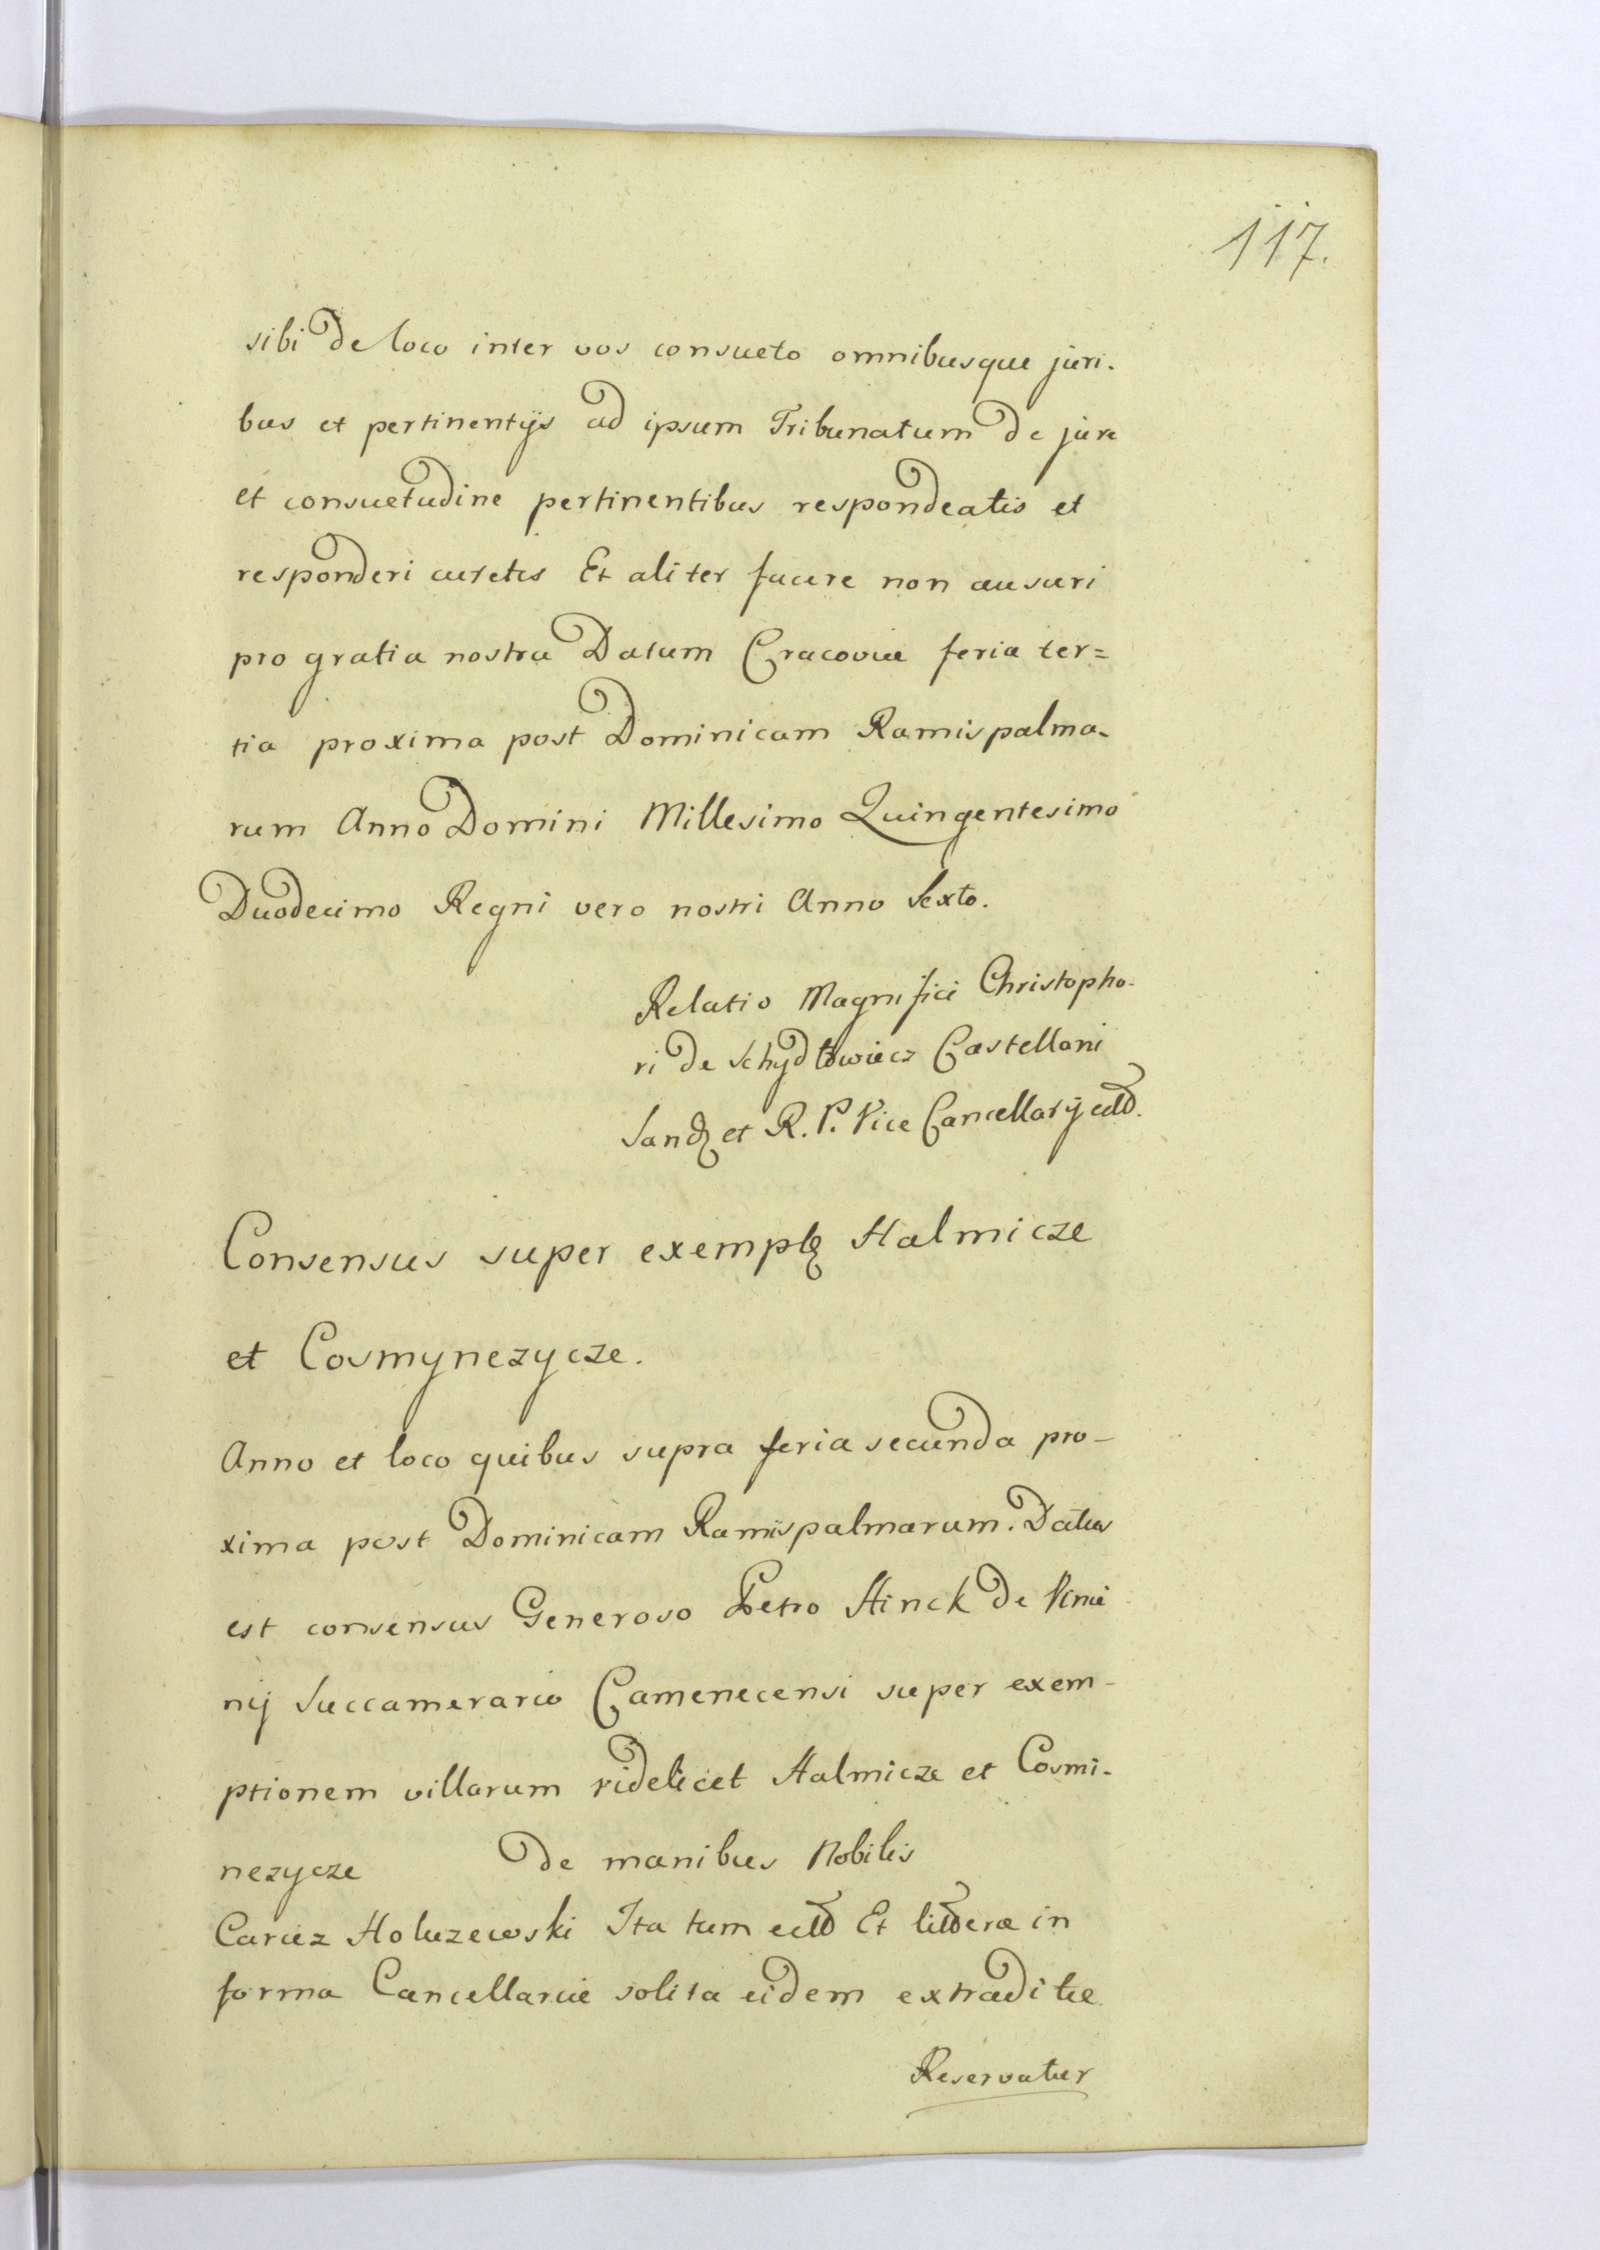 117.
sibi de loco inter vos consueto omnibusque juri-
bus et pertinentijs ad ipsum Tribunatum de jure
et consuetudine pertinentibus respondeatis et
responderi curetis Et aliter facere non ausuri
pro gratia nostra Datum Cracoviæ feria ter=
tia proxima post Dominicam Ramispalma-
rum Anno Domini Millesimo Quingentesimo
Duodecimo Regni vero nostri Anno Sexto.
Relatio Magnifici Christopho-
ri de Schydłowiecz Castellani
et R. P. Vice Cancellarij
Consensus super Halmicze
et Cosmynezycze.
Anno et loco quibus supra feria secunda pro-
xima post Dominicam Ramispalmarum. Datus
est consensus Generoso Petro Hinck de
nij Succamerario Camenecensi super exem-
ptionem villarum videlicet Halmicze et Cosmi-
nezycze de manibus Nobilis
Holuzewski Ita tum Et in
forma Cancellariæ solita eidem extraditæ
Reservatur